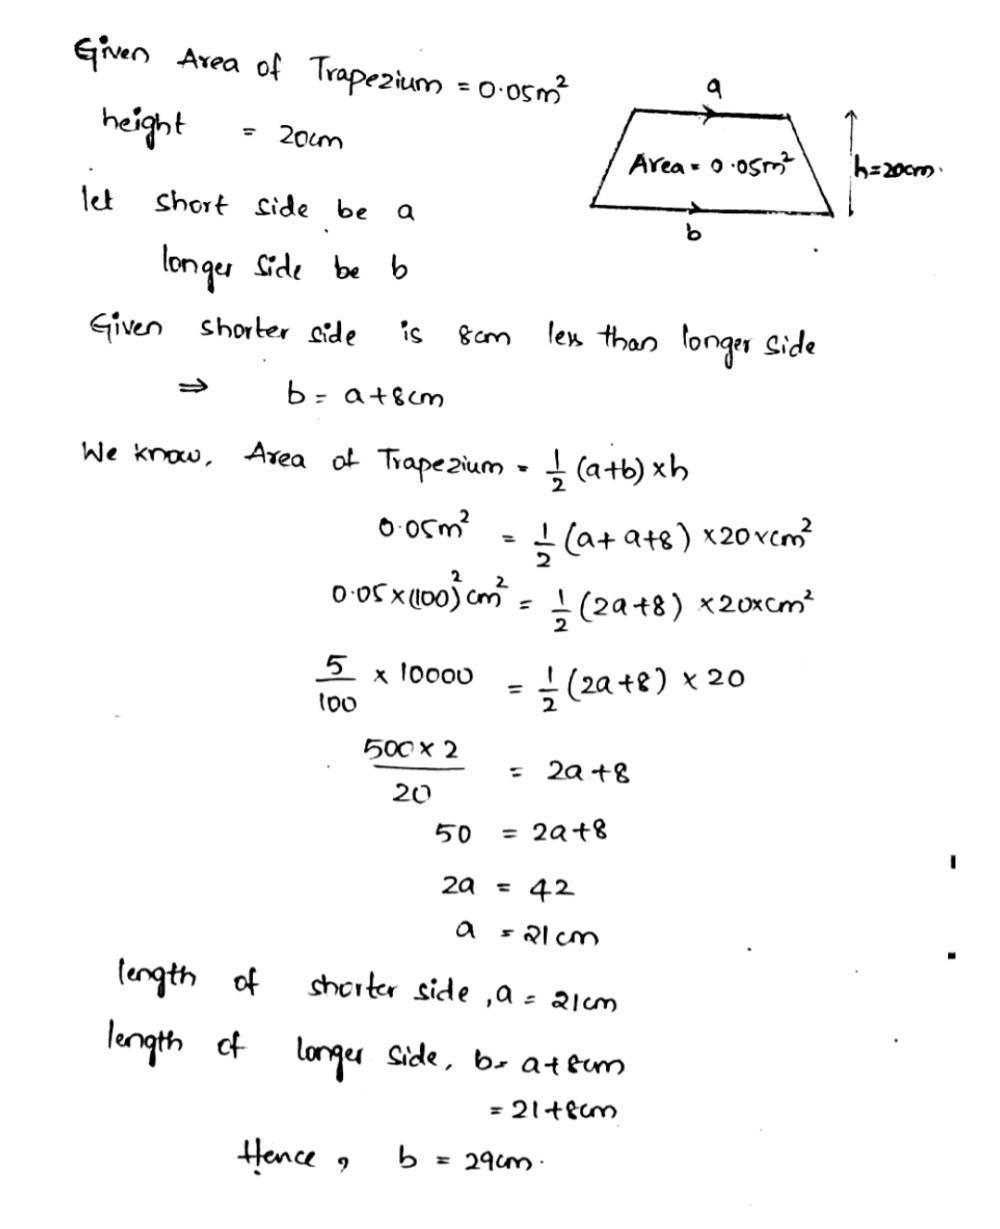 Given Area of Trapezium = 0.05m²
height = 20cm
a
Area = 0.05m²
h=20cm.
b
let short side be a
longer side be b
Given shorter side is 8cm less than longer side
⇒ b = a+8cm
We know, Area of Trapezium = 1/2 (a+b) × h
0.05m² = 1/2 (a+ a+8) × 20 × cm²
0.05 × (100)² cm² = 1/2 (2a+8) × 20 × cm²
5/100 × 10000 = 1/2 (2a+8) × 20
500 × 2 / 20 = 2a+8
50 = 2a+8
2a = 42
a = 21cm
length of shorter side, a = 21cm
length of longer side, b = a+8cm
= 21+8cm
Hence, b = 29cm.